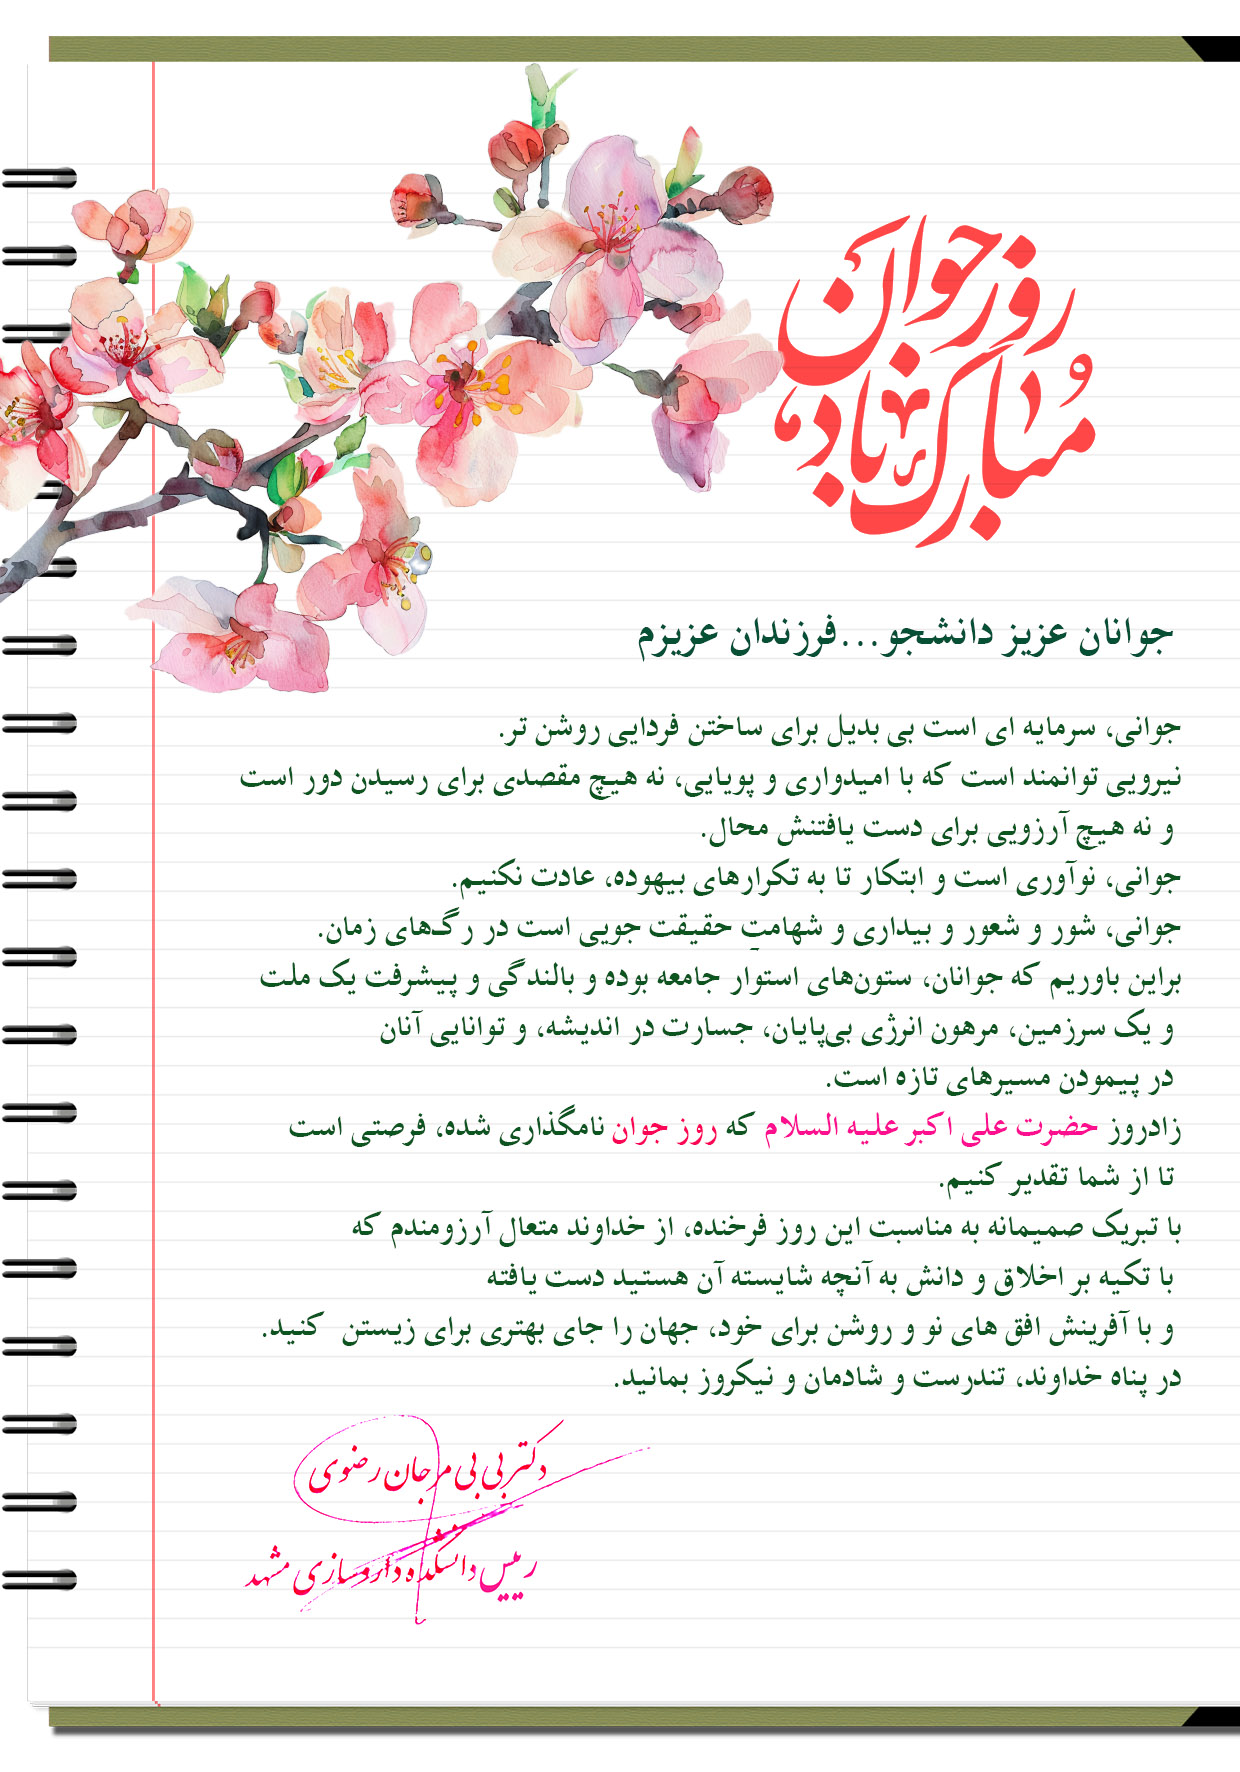 روز جوان
مبارک باد
جوانان عزیز دانشجو...فرزندان عزیزم
جوانی، سرمایه ای است بی بدیل برای ساختن فردایی روشن تر.
نیرویی توانمند است که با امیدواری و پویایی، نه هیچ مقصدی برای رسیدن دور است
و نه هیچ آرزویی برای دست یافتنش محال.
جوانی، نوآوری است و ابتکار تا به تکرارهای بیهوده، عادت نکنیم.
جوانی، شور و شعور و بیداری و شهامتِ حقیقت جویی است در رگ‌های زمان.
براین باوریم که جوانان، ستون‌های استوار جامعه بوده و بالندگی و پیشرفت یک ملت
و یک سرزمین، مرهون انرژی بی‌پایان، جسارت در اندیشه، و توانایی آنان
در پیمودن مسیرهای تازه است.
زادروز حضرت علی اکبر علیه السلام که روز جوان نامگذاری شده، فرصتی است
تا از شما تقدیر کنیم.
با تبریک صمیمانه به مناسبت این روز فرخنده، از خداوند متعال آرزومندم که
با تکیه بر اخلاق و دانش به آنچه شایسته آن هستید دست یافته
و با آفرینش افق های نو و روشن برای خود، جهان را جای بهتری برای زیستن کنید.
در پناه خداوند، تندرست و شادمان و نیکروز بمانید.
دکتر بی بی مرجان رضوی
رییس دانشکده داروسازی مشهد